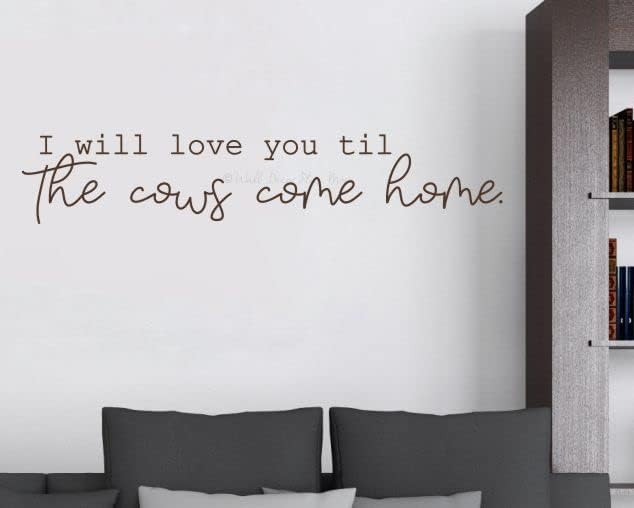 I will love you til
the cows come home.